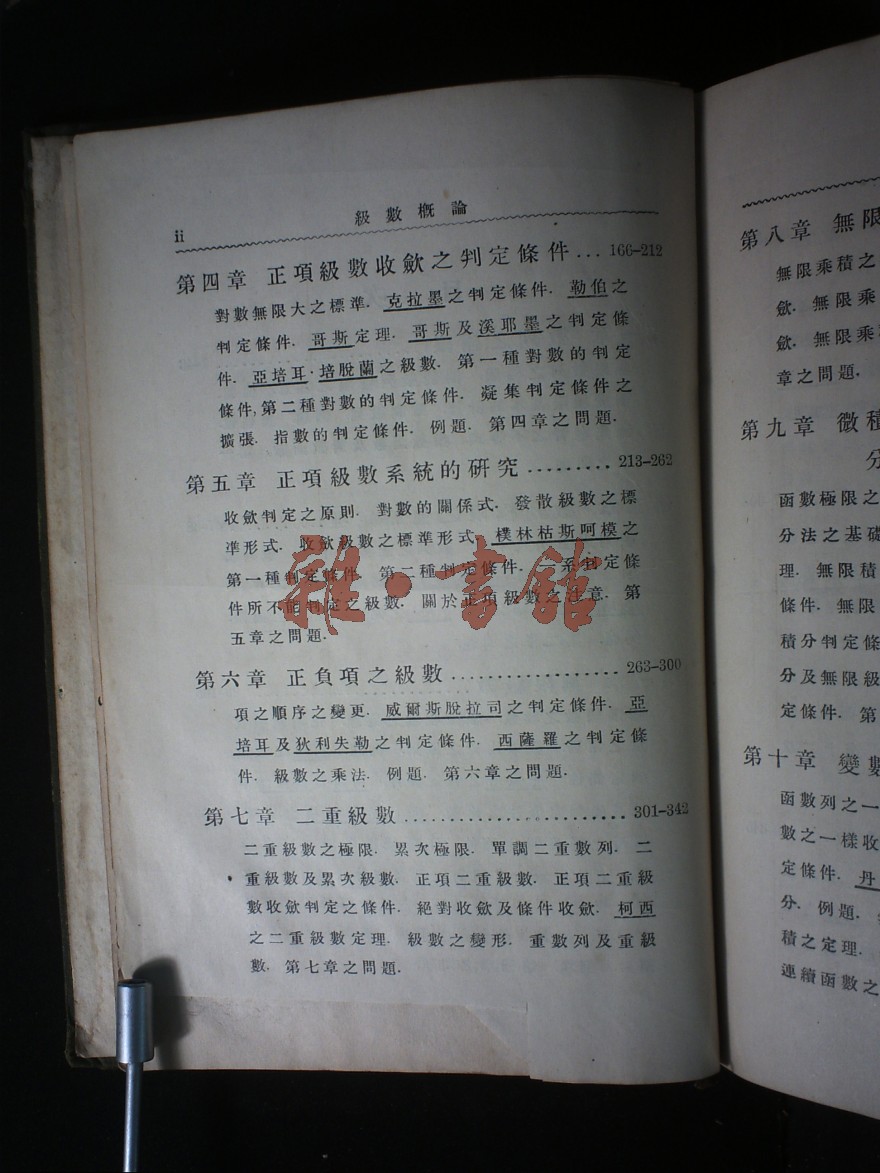 ii
級數概論
第四章 正項級數收歛之判定條件...166-212
對數無限大之標準. 克拉墨之判定條件. 勒伯之
判定條件. 哥斯定理. 哥斯及溪耶墨之判定條
件. 亞培耳·培脫蘭之級數. 第一種對數的判定
條件,第二種對數的判定條件. 凝集判定條件之
擴張. 指數的判定條件. 例題. 第四章之問題.
第五章 正項級數系統的研究.........213-262
收歛判定之原則. 對數的關係式. 發散級數之標
準形式. 收歛級數之標準形式. 樸林枯斯呵模之
第一種判定條件. 第二種判定條件. 系判定條
件所不能判定之級數. 關於正項級數之注意. 第
五章之問題.
第六章 正負項之級數..................263-300
項之順序之變更. 威爾斯脫拉司之判定條件. 亞
培耳及狄利失勒之判定條件. 西薩羅之判定條
件. 級數之乘法. 例題. 第六章之問題.
第七章 二重級數........................301-342
二重級數之極限. 累次極限. 單調二重數列. 二
重級數及累次級數. 正項二重級數. 正項二重級
數收歛判定之條件. 絕對收歛及條件收歛. 柯西
之二重級數定理. 級數之變形. 重數列及重級
數. 第七章之問題.
雅·書館
第八章 無限
無限乘積之
歛. 無限乘
歛. 無限乘
章之問題.
第九章 微積
分
函數極限之
分法之基礎
理. 無限積
條件. 無限
積分判定條
分及無限級
定條件. 第
第十章 變數
函數列之一
數之一樣收
定條件. 丹
分. 例題.
積之定理.
連續函數之